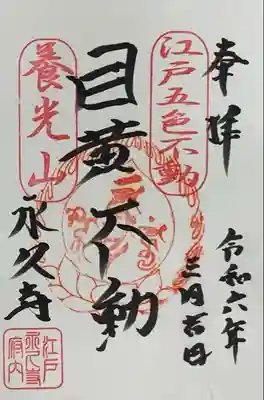 奉拝
令和六年
三月吉日
江戸五色不動
目黄不動
養光山
永久寺
江戸
府内